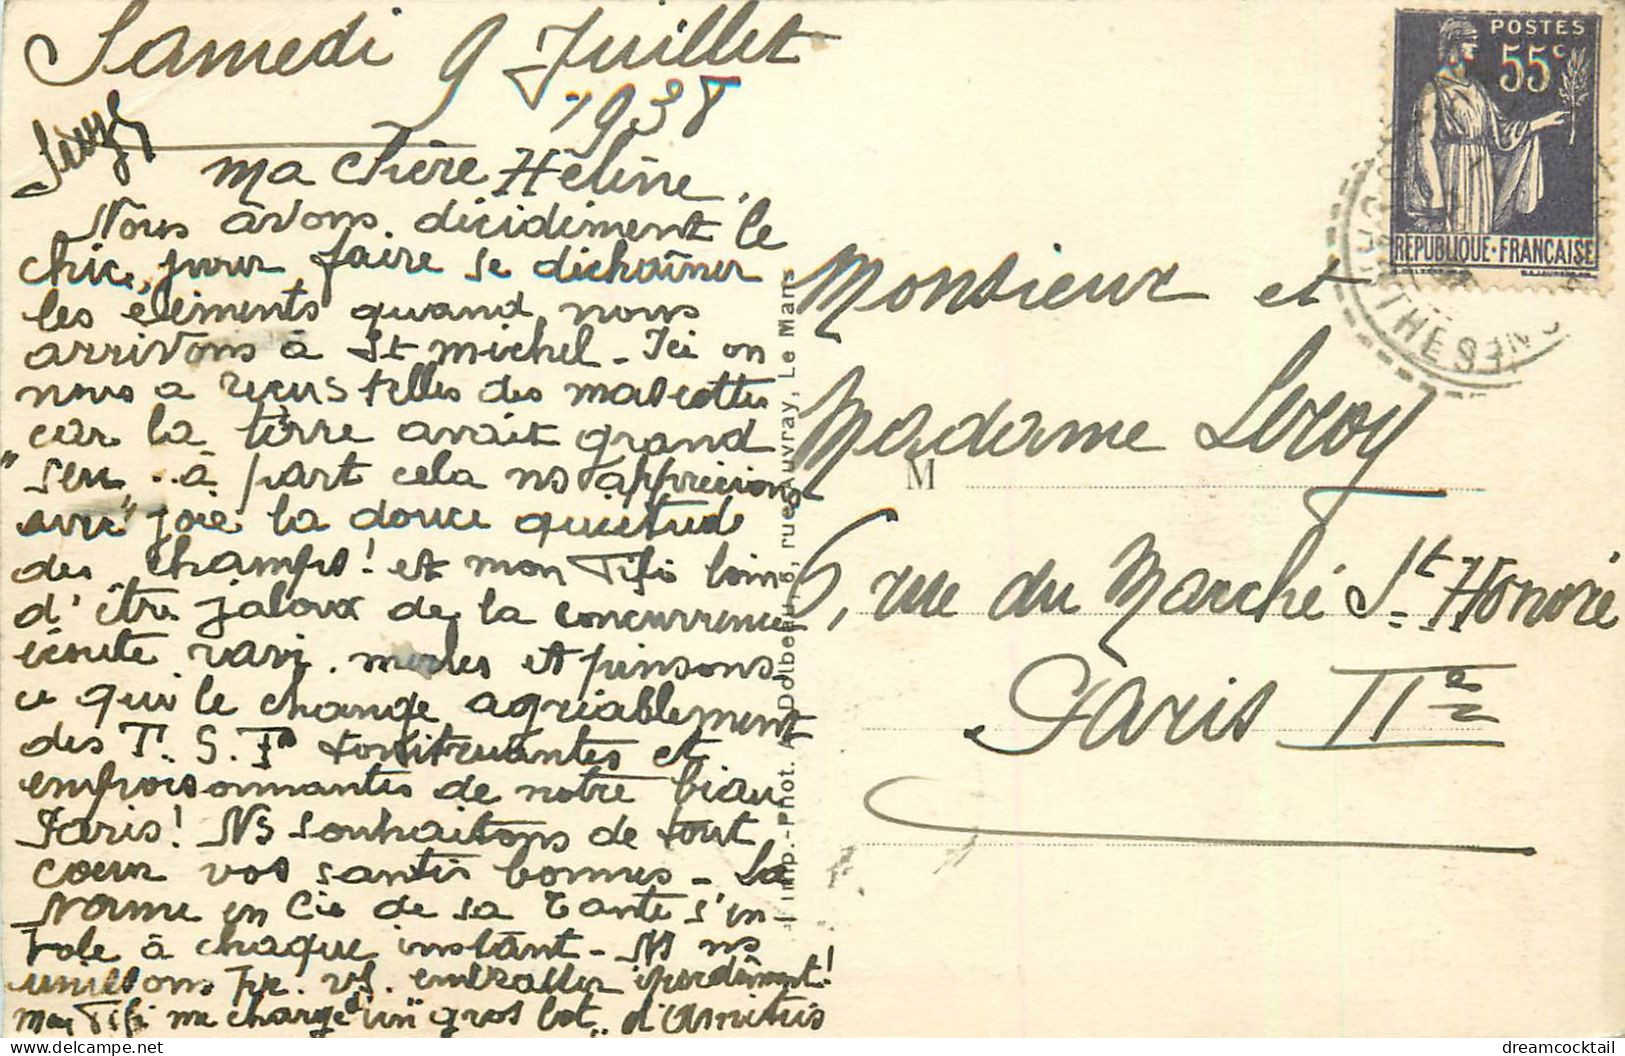 Samedi 9 Juillet
1938
Ma chère Hélène,
Nous avons décidément le
chic, pour faire se déchaîner
les éléments quand nous
arrivons à St Michel - Ici on
nous a reçus telles des mascottes
car la terre avait grand
"seu.. à part cela ns apprécions
avec joie la douce quiétude
des champs! et mon Tifi loin
d'être jaloux de la concurrence
écoute ravi merles et pinsons
ce qui le change agréablement
des T.S.F. tonitruantes et
empoisonnantes de notre beau
Paris! Ns souhaitons de tout
cœur vos santés bonnes - La
Norme en Cie de sa Tante s'en-
vole à chaque instant - Ns ns
unissons pr. vs. embrasser éperdument!
Mon Tifi me charge d'un gros lot.. d'Amitiés
Imp.-Phot. A. Dolbeau, rue Auvray, Le Mans
POSTES
55c
RÉPUBLIQUE·FRANÇAISE
Monsieur et
Madame Leroy
M
6, rue du Marché St. Honoré
Paris IIe
dreamcocktail